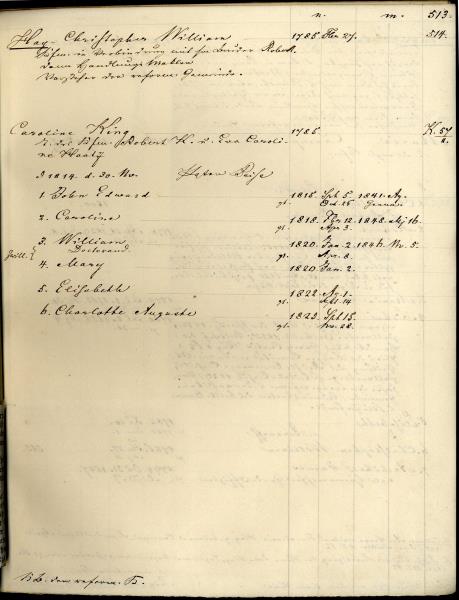 n. m. 513.
Hay, Christopher William 1785 Febr 27. 514.
Kfm. in Verbindung mit sr. Bruder Robert.
dann Handlungs Makler
Vorsteher der reform. Gemeinde.
Caroline King 1785 K. 57
T. des Kfm. Robert K. u. Eva Caroli-
ne
d 1814 d. 30. Nv. Pastor
1 John Edward 1815. Spt 5. 1841. Ag.
gt. Oct. 25
2. Caroline 1818. 12. 1848. Mj 16.
gt. Apr 3.
3. William 1820. Jan. 2. 1846. Nv. 5.
Doctorand gt. Apr. 8.
Zwill.
4. Mary 1820 Jan. 2.
5. Elisabeth 1822. Ag. 1.
gt. Okt. 14
6. Charlotte Auguste 1823. Spt 15.
gt. Nv. 28.
KB. der reform. G.